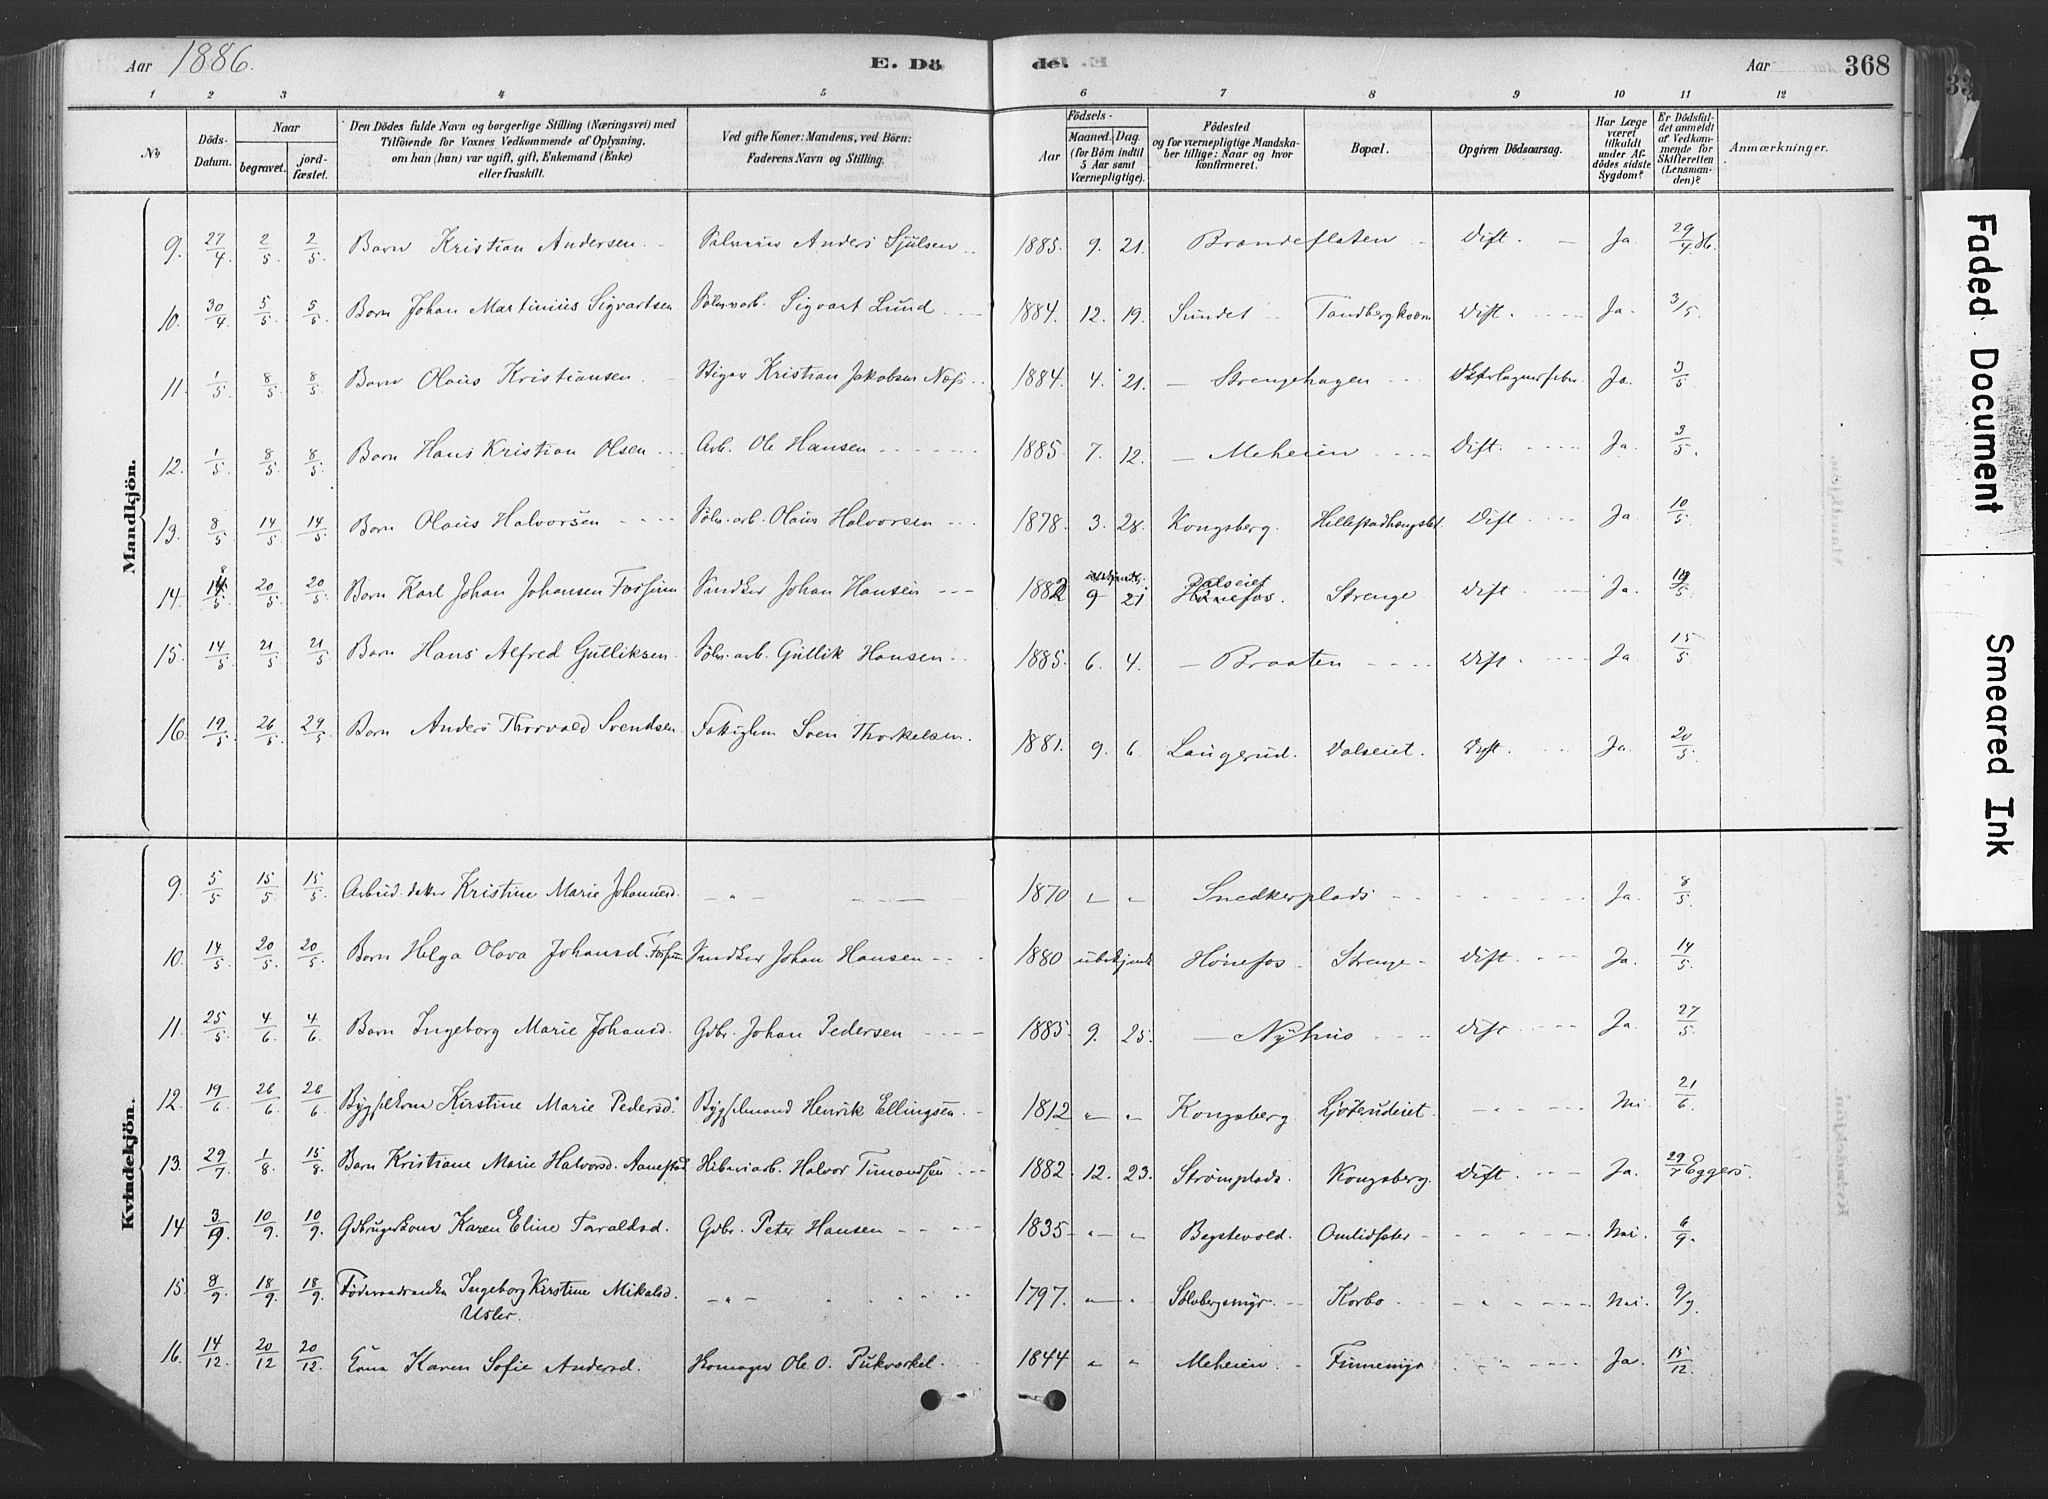 Aar 1886. E. Dö de. Aar 368
1 2 3 4 5 6 7 8 9 10 11 12
No Döds-Datum. Naar begravet. jord-fæstet. Den Dödes fulde Navn og borgerlige Stilling (Næringsvei) med Tilföiende for Voxnes Vedkommende af Oplysning, om han (hun) var ugift, gift, Enkemand (Enke) eller fraskilt. Ved gifte Koner: Mandens, ved Börn: Faderens Navn og Stilling. Födsels- Aar Maaned. Dag. (for Börn indtil 5 Aar samt Værnepligtige). Födested og for værnepligtige Mandskaber tillige: Naar og hvor konfirmeret. Bopæl. Opgiven Dödsaarsag. Har Læge været tilkaldt under Afdödes sidste Sygdom? Er Dödsfaldet anmeldt af Vedkommende for Skifteretten (Lensmanden)? Anmærkninger.
Mandkjön.
9. 27/4 2/5 2/5 Barn Kristian Andersen Anders Sjulsen 1885. 9. 21. Brændeflaten Dift. Ja. 29/4 86.
10. 30/4 5/5 5/5 Barn Johan Martinius Sigvartsen Sölvarb. Sigvart Lund 1884. 12. 19. Sundet Tandbergkvern Dift. Ja. 3/5.
11. 1/5 8/5 8/5 Barn Olaus Kristiansen Stiger Kristian Jakobsen Næss 1884. 4. 21. Strengehagen Ja. 3/5
12. 1/5 8/5 8/5 Barn Hans Kristian Olsen Arb. Ole Hansen 1885. 7. 12. Meheien Dift. Ja. 3/5.
13. 8/5 14/5 14/5 Barn Olaus Halvorsen Sölv. arb. Olaus Halvorsen 1878. 3. 28. Kongsberg. Dift. Ja. 10/5
14. 14/5 20/5 20/5 Barn Karl Johan Johansen Fossum Snedker Johan Hansen 1882 9 21 Dalseiet Hönefos. Strenge Dift Ja.
15. 14/5 21/5 21/5 Barn Hans Alfred Gulliksen. Sölv. arb. Gullik Hansen 1885. 6. 4. Braaten Dift. Ja 15/5
16. 19/5 26/5 29/5 Barn Anders Thorvald Svendsen Fattiglem Sven Thorkelsen. 1881. 9. 6. Laugerud. Dalseiet. Dift. Ja. 20/5
Kvindekjön.
9. 5/5 15/5 15/5 Arbeid. datter Kristine Marie Johannesd. 1870 Snedkerplads Ja. 8/5.
10. 14/5 20/5 20/5 Barn Helga Olava Johansd. Fossum Snedker Johan Hansen 1880 ubekjendt Hönefos Strenge Dift. Ja. 14/5.
11. 25/5 4/6 4/6 Barn Ingeborg Marie Johansd. Gdbr. Johan Pedersen 1885. 9. 25. Nyhus Dift Ja. 27/5
12. 19/6 26/6 26/6 Bygselkone Kirstine Marie Pedersd. Bygselmand Henrik Ellingsen 1812 Kongsberg Ljöterudeiet. Nei. 21/6.
13. 29/7 1/8 15/8 Barn Kristiane Marie Halvorsd. Aanestad Halvor Timandsen 1882. 12. 23. Strömplads. Kongsberg. Dift. Ja. 29/7 Eggers.
14. 3/9 10/9 10/9 Gdbrugerkone Karen Eline Taraldsd. Gdbr. Peter Hansen 1835 Begstevold. Omlidseter Nei. 6/9.
15. 8/9 18/9 18/9 Föderaadsenke Ingeborg Kirstine Mikalsd. 1797. Sölvbergsmyr. Korbo Nei. 9/9.
Usler.
16. 14/12 20/12 20/12 Kone Karen Sofie Andersd. Homager Ole O. Pukverkel. 1844 Meheien Finnemyr Ja. 15/12
Faded Document
Smeared Ink